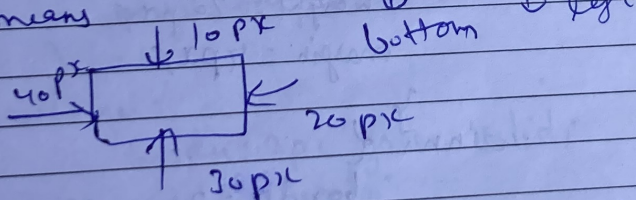 means
10px
bottom
40px
20px
30px